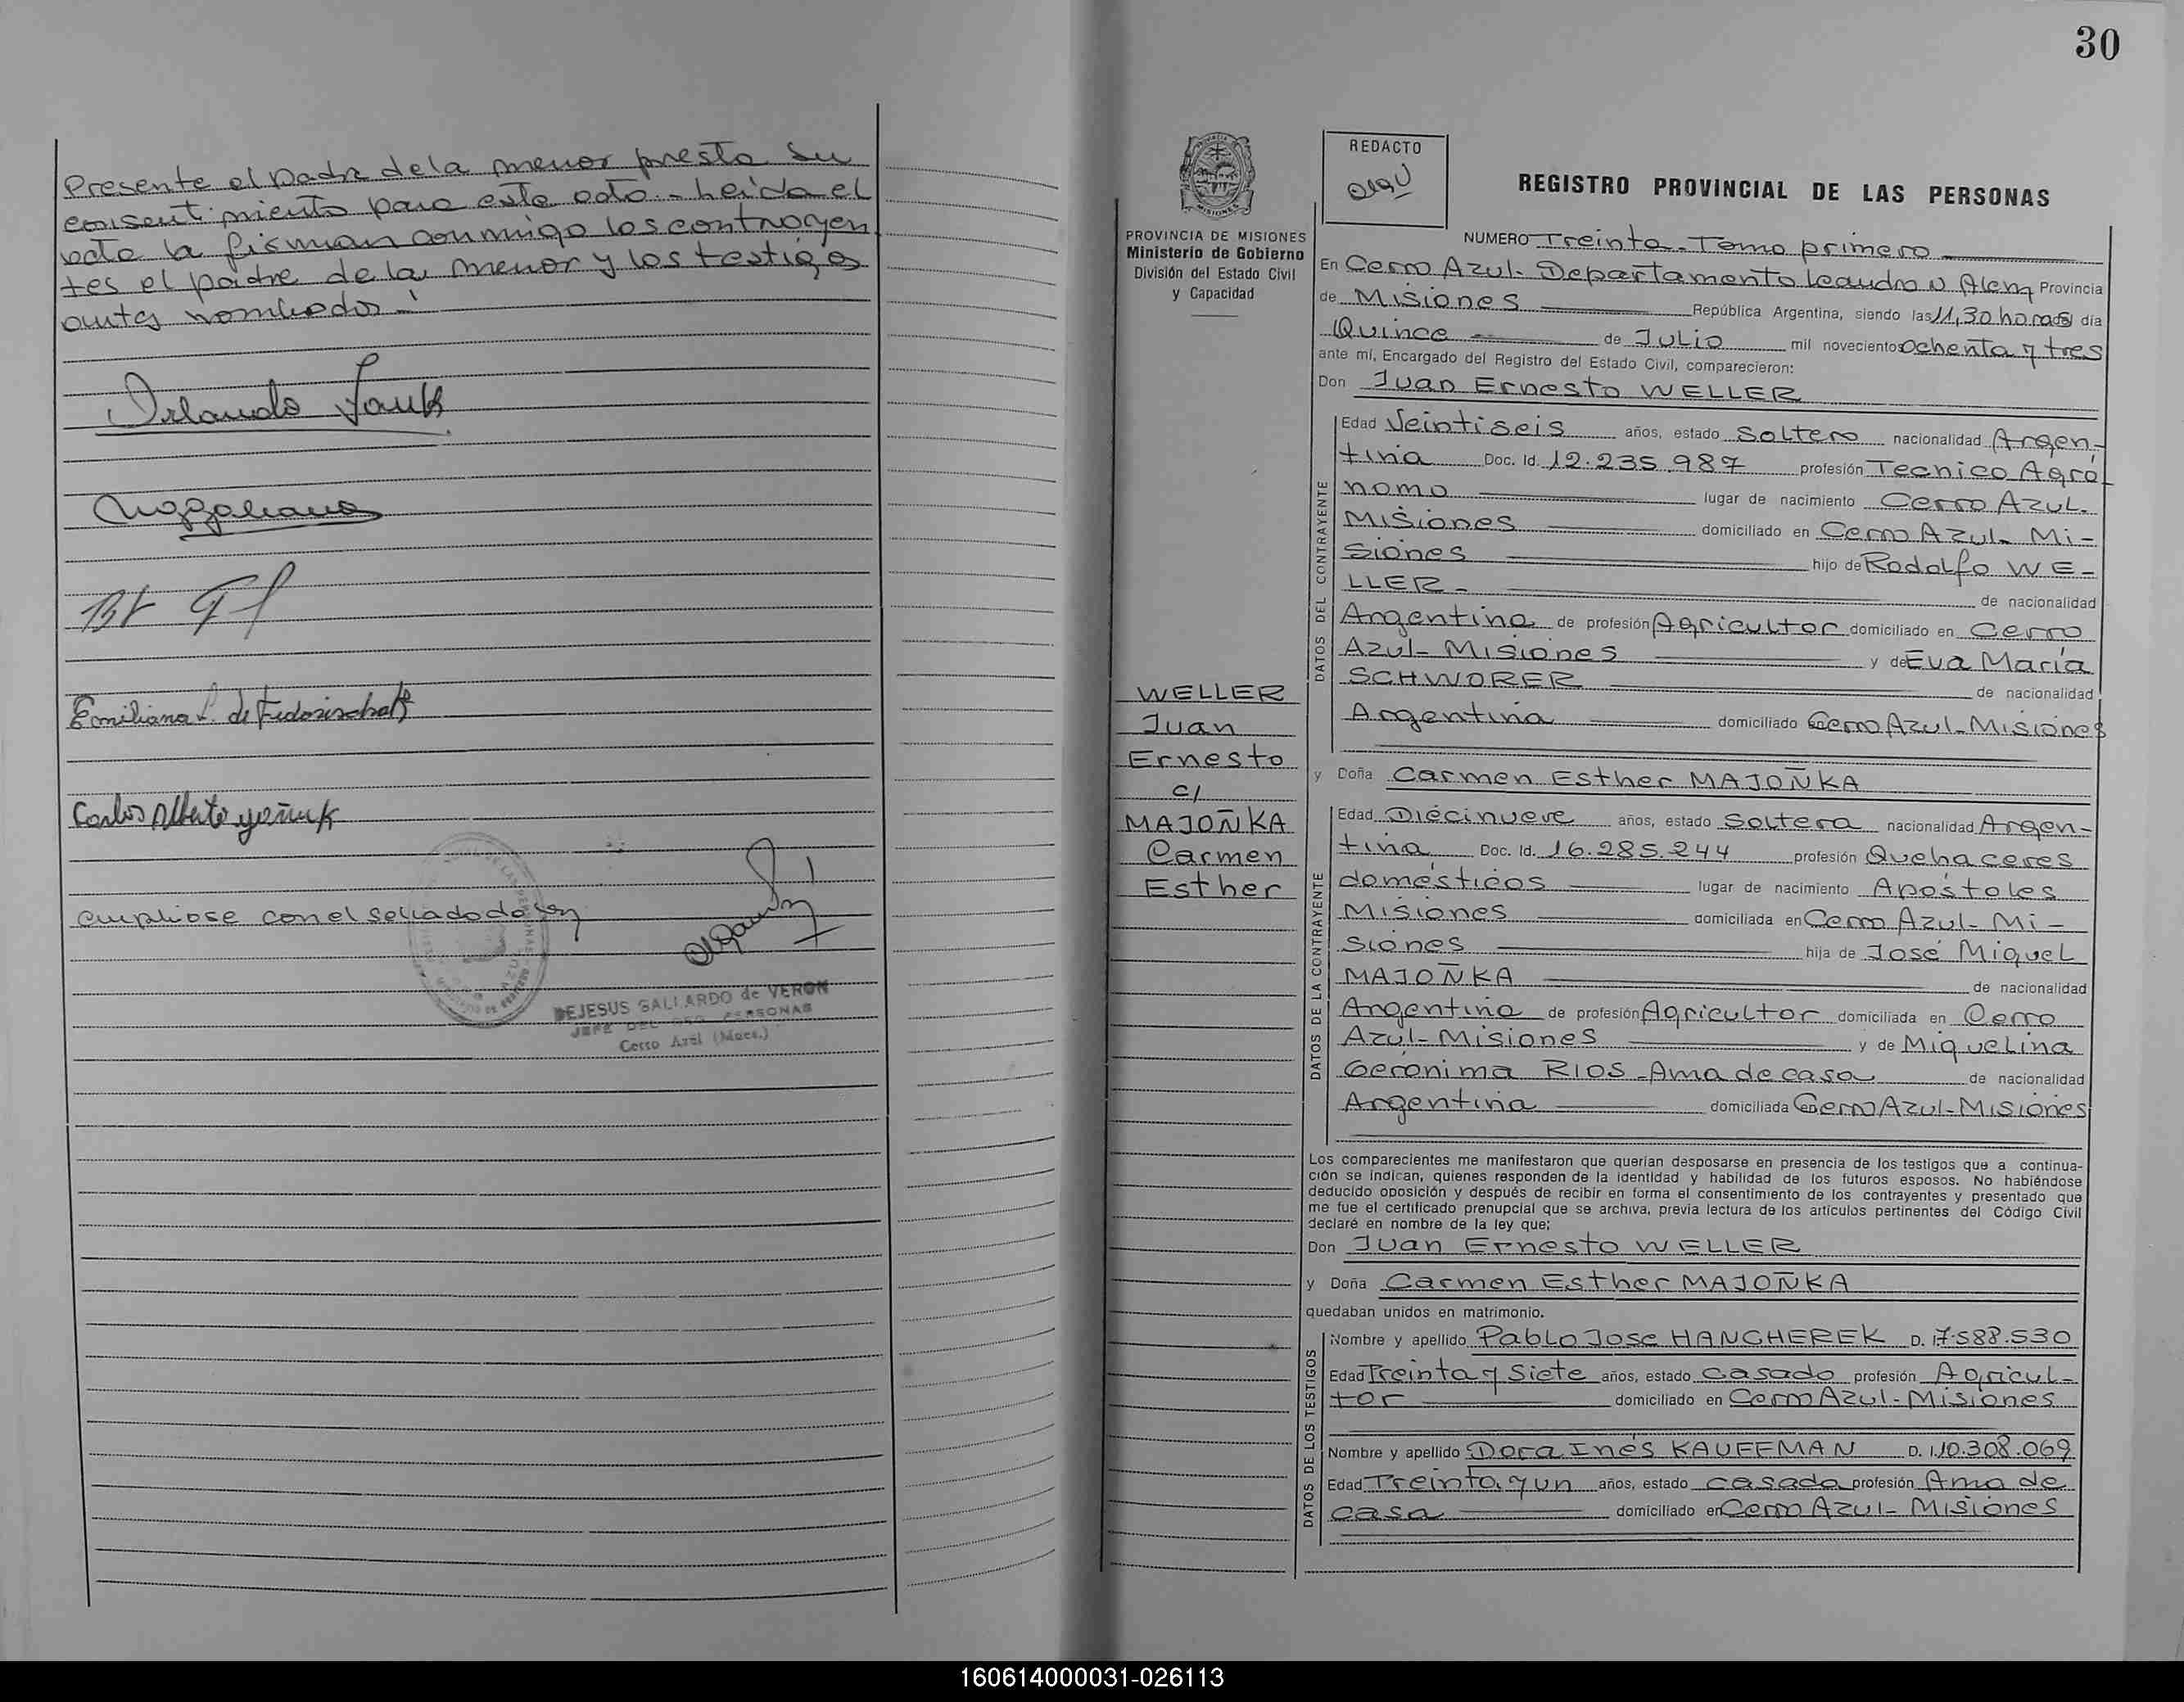 Presente el padre de la menor presta su
consentimiento para este acto. - leida el
acta la firman conmigo los contrayen
tes el padre de la menor y los testigos
antes nombrados.
Orlando
Emiliana L. de
Carlos Alberto
cumpliose con el sellado de ley
DEJESUS GALLARDO de VERON
JEFE DEL REG PERSONAS
Cerro Azul (Mnes.)
30
PROVINCIA DE MISIONES
Ministerio de Gobierno
División del Estado Civil
y Capacidad
WELLER
Juan
Ernesto
c/
MAJOÑKA
Carmen
Esther
REDACTO
REGISTRO PROVINCIAL DE LAS PERSONAS
NUMERO Treinta - Tomo primero
En Cerro Azul - Departamento Leandro N Alem Provincia
de Misiones República Argentina, siendo las 11,30 horas día
Quince de Julio mil novecientos Ochenta y tres
ante mí, Encargado del Registro del Estado Civil, comparecieron:
Don Juan Ernesto WELLER
DATOS DEL CONTRAYENTE
Edad Veintiseis años, estado Soltero nacionalidad Argen-
tina Doc. Id. 12.235.987 profesión Tecnico Agró
nomo lugar de nacimiento Cerro Azul.
Misiones domiciliado en Cerro Azul - Mi-
siones hijo de Rodolfo WE-
LLER - de nacionalidad
Argentina de profesión Agricultor domiciliado en Cerro
Azul - Misiones y de Eva María
SCHWORER de nacionalidad
Argentina domiciliado en Cerro Azul - Misiones
y Doña Carmen Esther MAJOÑKA
DATOS DE LA CONTRAYENTE
Edad Diecinueve años, estado Soltera nacionalidad Argen-
tina Doc. Id. 16.285.244 profesión Quehaceres
domésticos lugar de nacimiento Apóstoles
Misiones domiciliada en Cerro Azul - Mi-
siones hija de José Miguel
MAJOÑKA de nacionalidad
Argentina de profesión Agricultor domiciliada en Cerro
Azul - Misiones y de Miguelina
Gerónima RIOS - Ama de casa de nacionalidad
Argentina domiciliada en Cerro Azul - Misiones
Los comparecientes me manifestaron que querían desposarse en presencia de los testigos que a continua-
ción se indican, quienes responden de la identidad y habilidad de los futuros esposos. No habiéndose
deducido oposición y después de recibir en forma el consentimiento de los contrayentes y presentado que
me fue el certificado prenupcial que se archiva, previa lectura de los artículos pertinentes del Código Civil
declaré en nombre de la ley que:
Don Juan Ernesto WELLER
y Doña Carmen Esther MAJOÑKA
quedaban unidos en matrimonio.
DATOS DE LOS TESTIGOS
Nombre y apellido Pablo Jose HANCHEREK D. I. 7.588.530
Edad Treinta y Siete años, estado casado profesión Agricul-
tor domiciliado en Cerro Azul - Misiones
Nombre y apellido Dora Inés KAUFFMAN D. I. 10.308.069
Edad Treinta y un años, estado casada profesión Ama de
casa domiciliado en Cerro Azul - Misiones
160614000031-026113